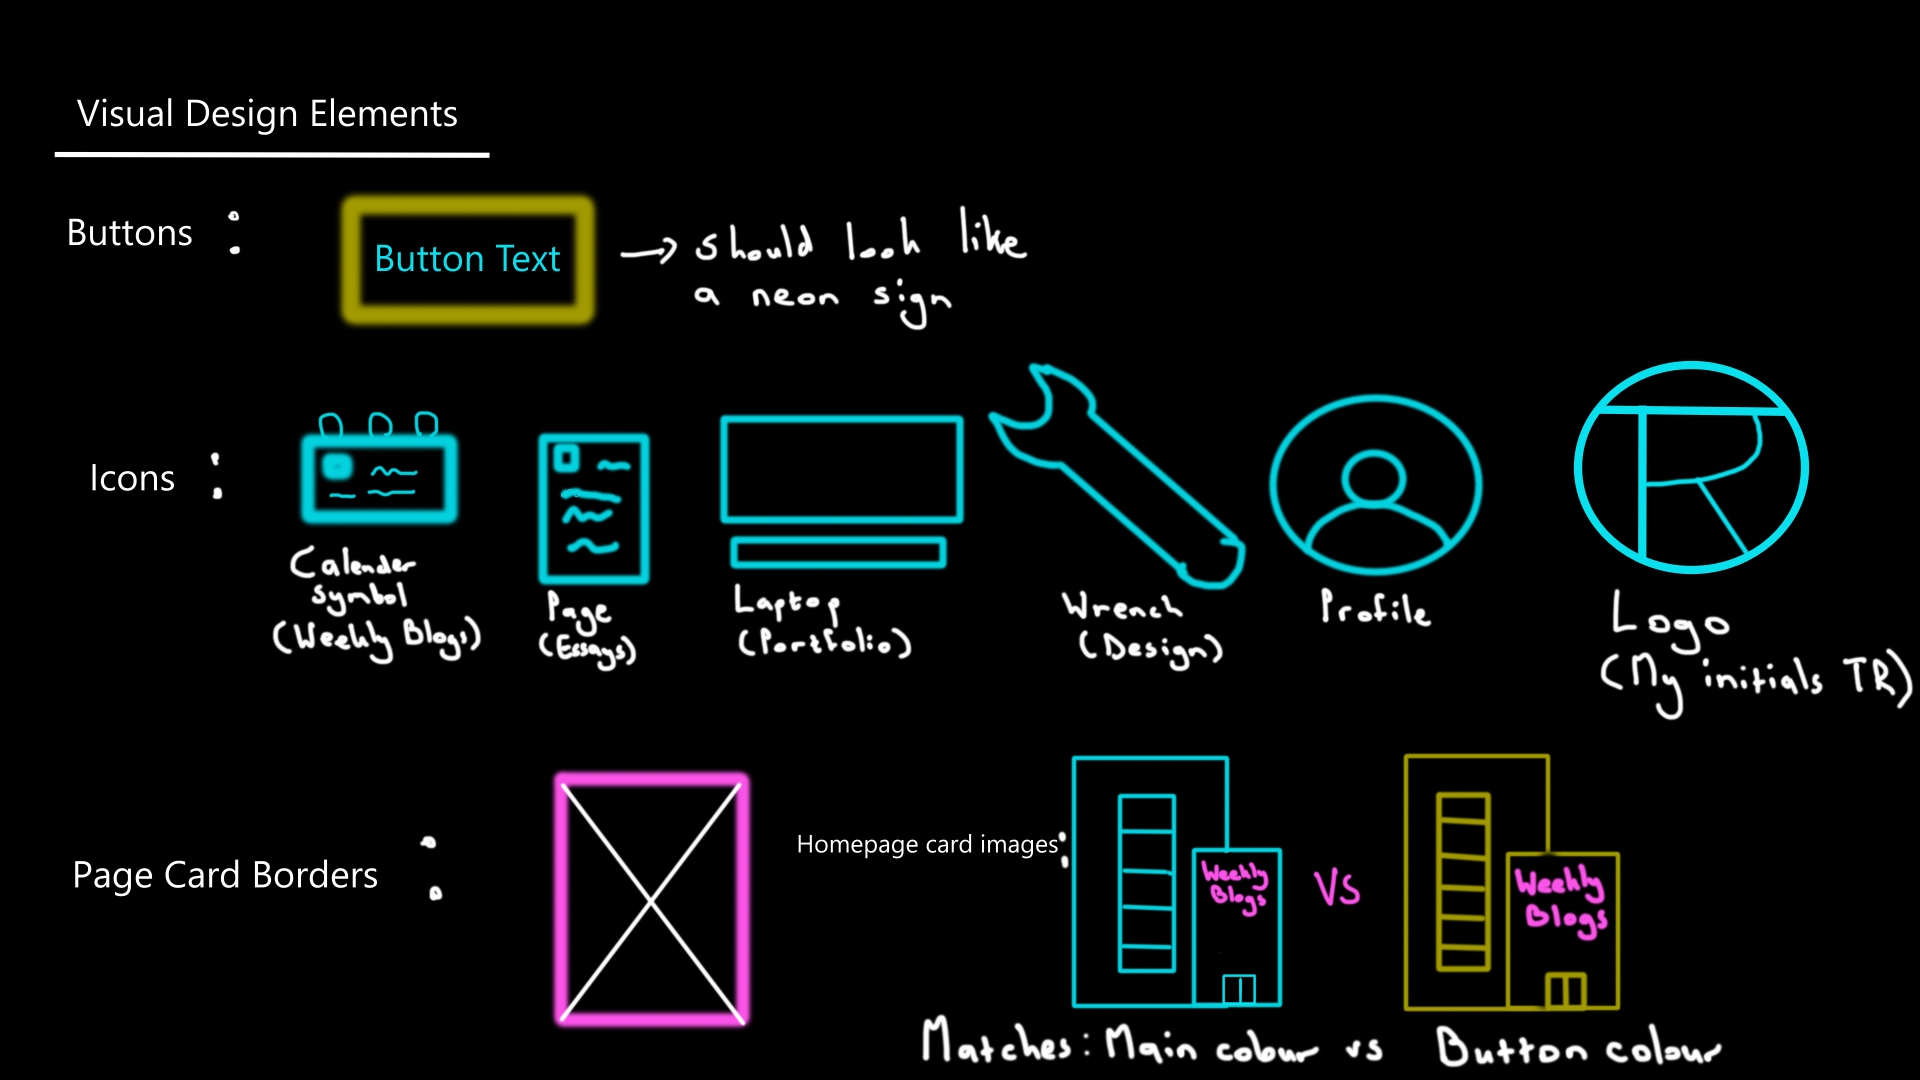 Visual Design Elements
Buttons :
Button Text
→ should look like
a neon sign
Icons :
Calender
symbol
(Weekly Blogs)
Page
(Essays)
Laptop
(Portfolio)
Wrench
(Design)
Profile
TR
Logo
(My initials TR)
Page Card Borders :
Homepage card images:
Weekly
Blogs
VS
Weekly
Blogs
Matches: Main colour vs Button colour